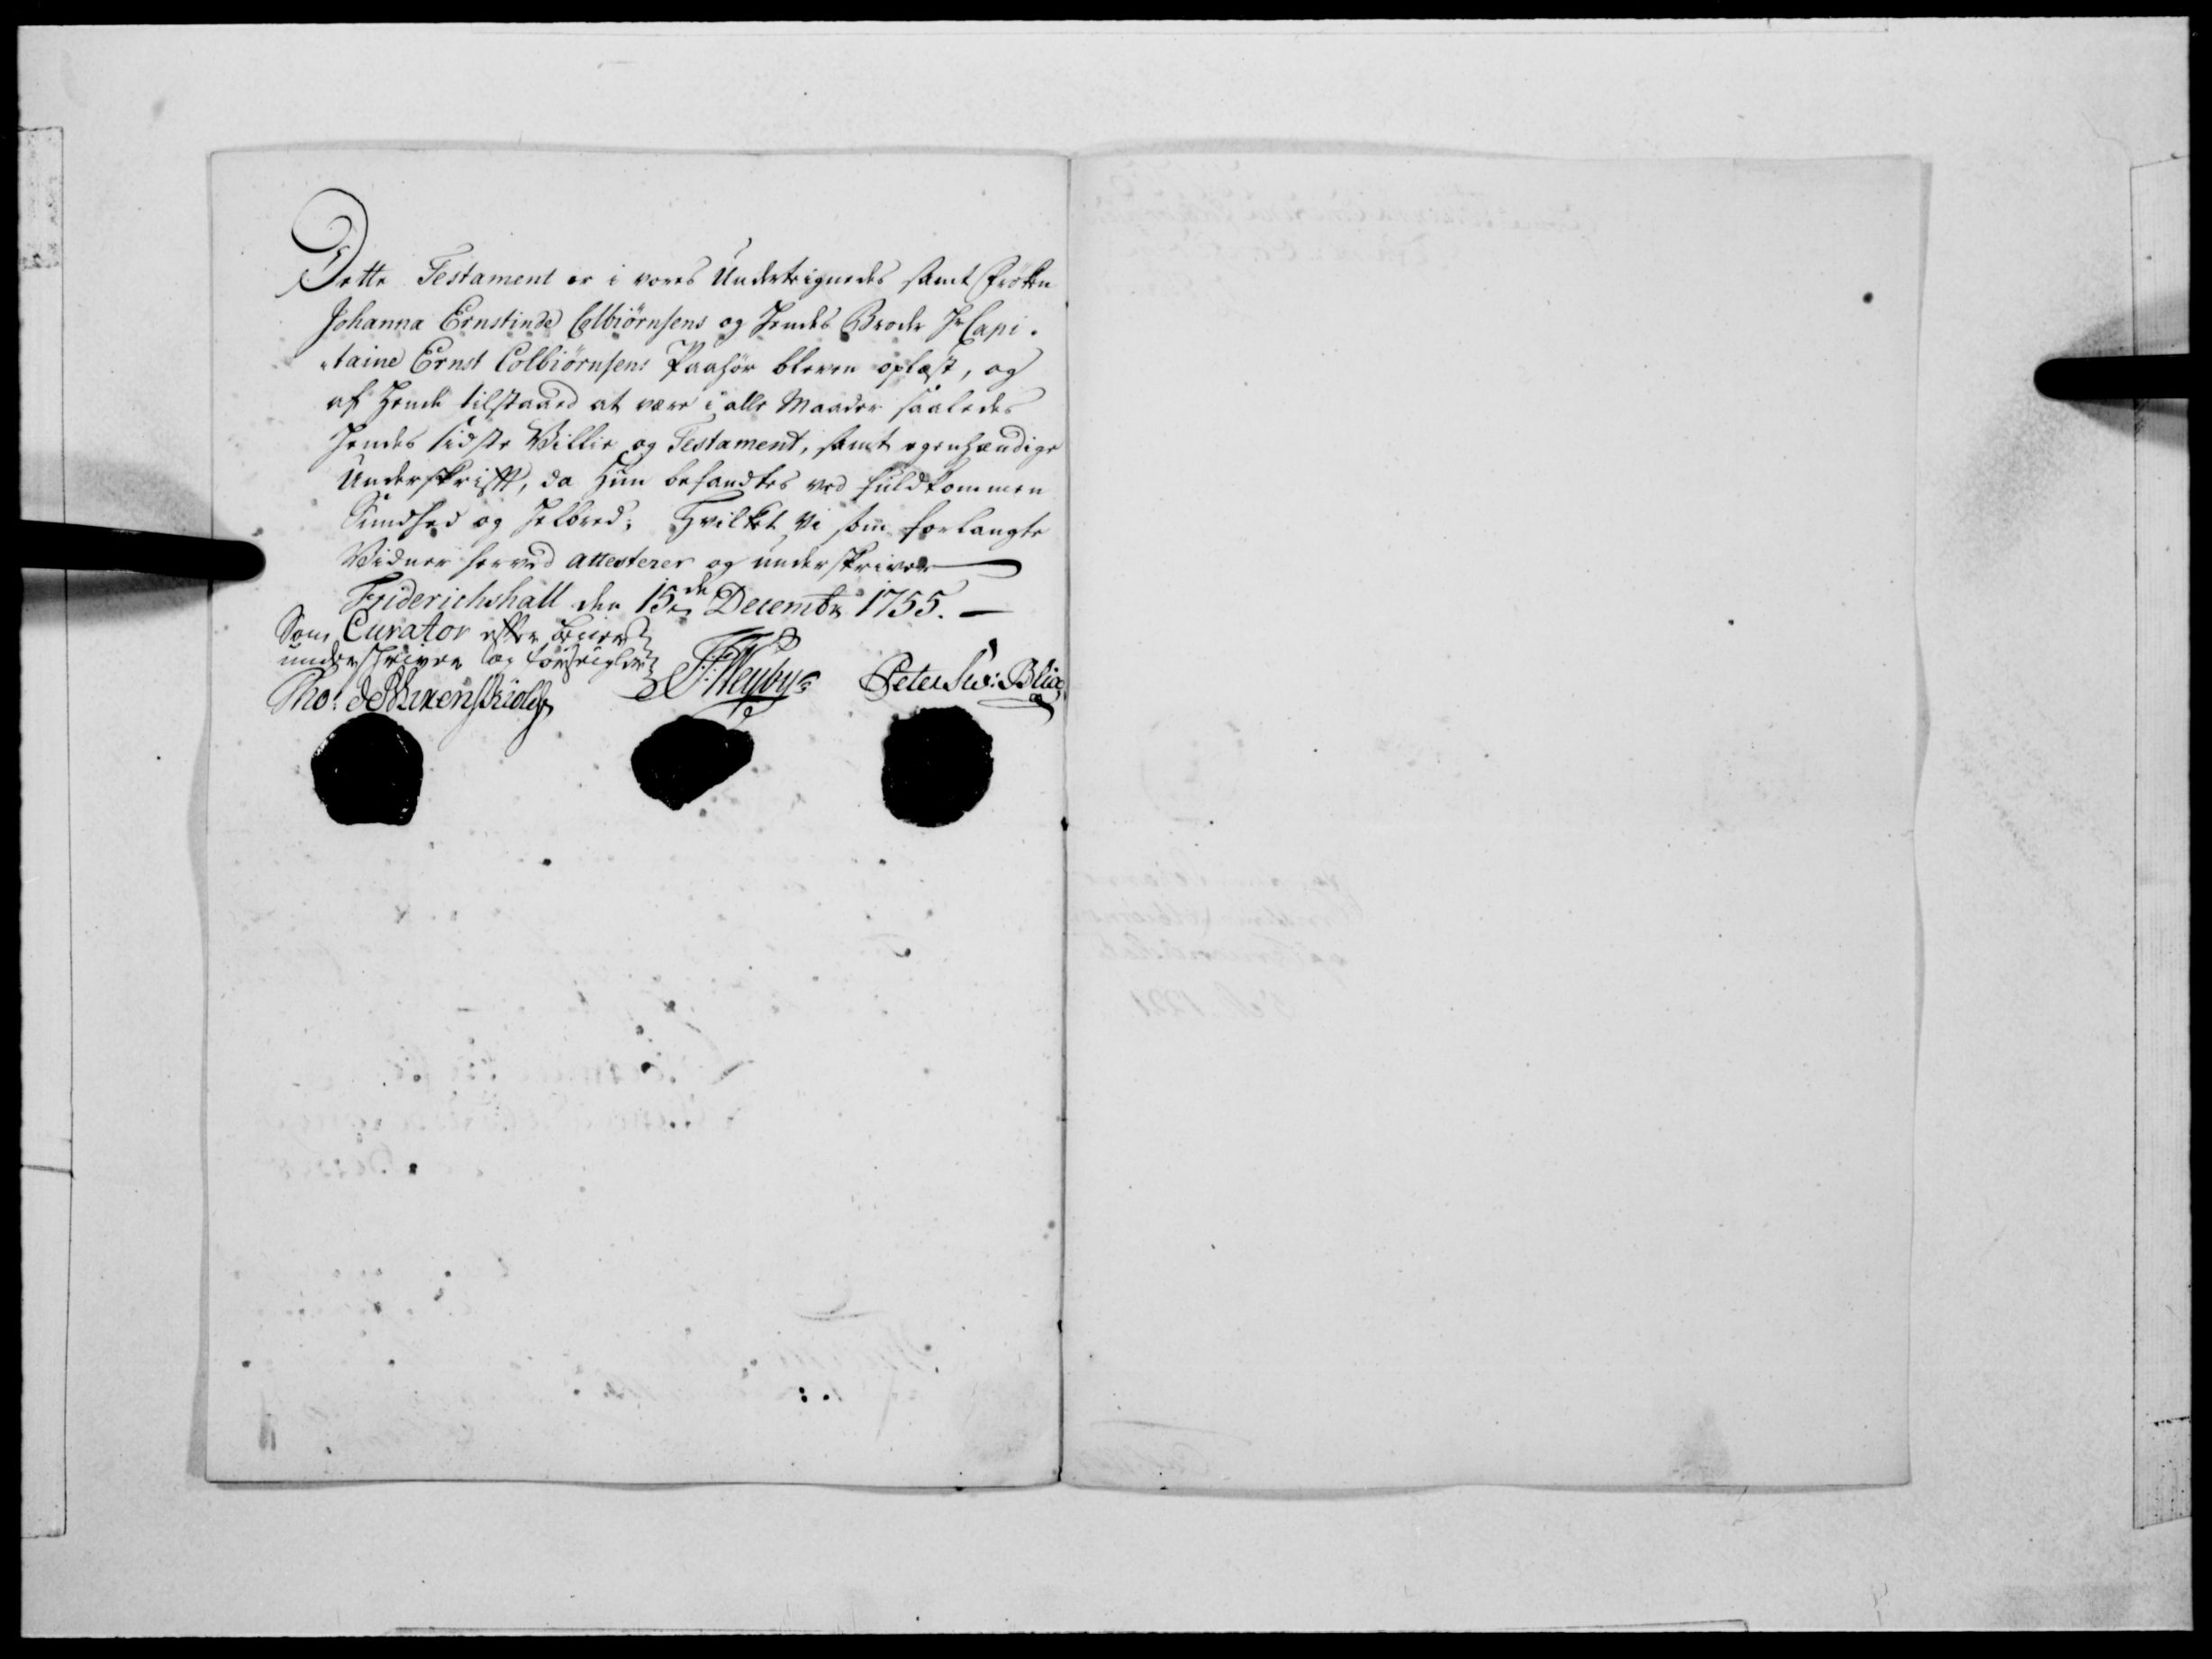 Dette Testament er i vores Undertegnedes samt Frøken
Johanna Ernstinde Colbiørnsens og Hendes Broder Hr Capi-
taine Ernst Colbiørnsens Paahør bleven oplæst, og
af Hende tilstaaed at være i alle Maader saaledes
Hendes sidste Villie og Testament, samt egenhændige
Underskrifft, da Hun befandtes ved fuldkommen
Sundhed og Helbred; Hvilket Vi som forlangte
Vidner herved attesterer og underskriver
Friderichshall den 15de Decembr 1755.
Som Curator efter
underskriver og forseigler
Tho:
Peter Blix